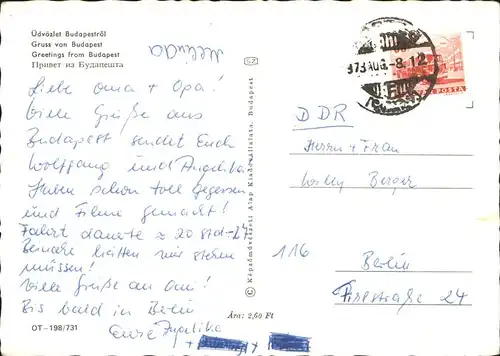 Üdvözlet Budapestről
Gruss von Budapest
Greetings from Budapest
Привет из Будапешта
Liebe Oma + Opa!
Viele Grüße aus
Budapest sendet Euch
Wolfgang und Angelika.
Haben schon toll gegessen
und Filme gemacht!
Fahrt dauerte ≈ 20 Std.
Beinahe hätten wir stehen
müssen!
Viele Grüße an
Bis bald in Berlin
Eure Angelika
+
OT-198/731
Ára: 2,60 Ft
© Képzőművészeti Alap Kiadóvállalata, Budapest
973 AUG.-8. 12
POSTA
DDR
Herrn + Frau
Berger
116
Berlin
24